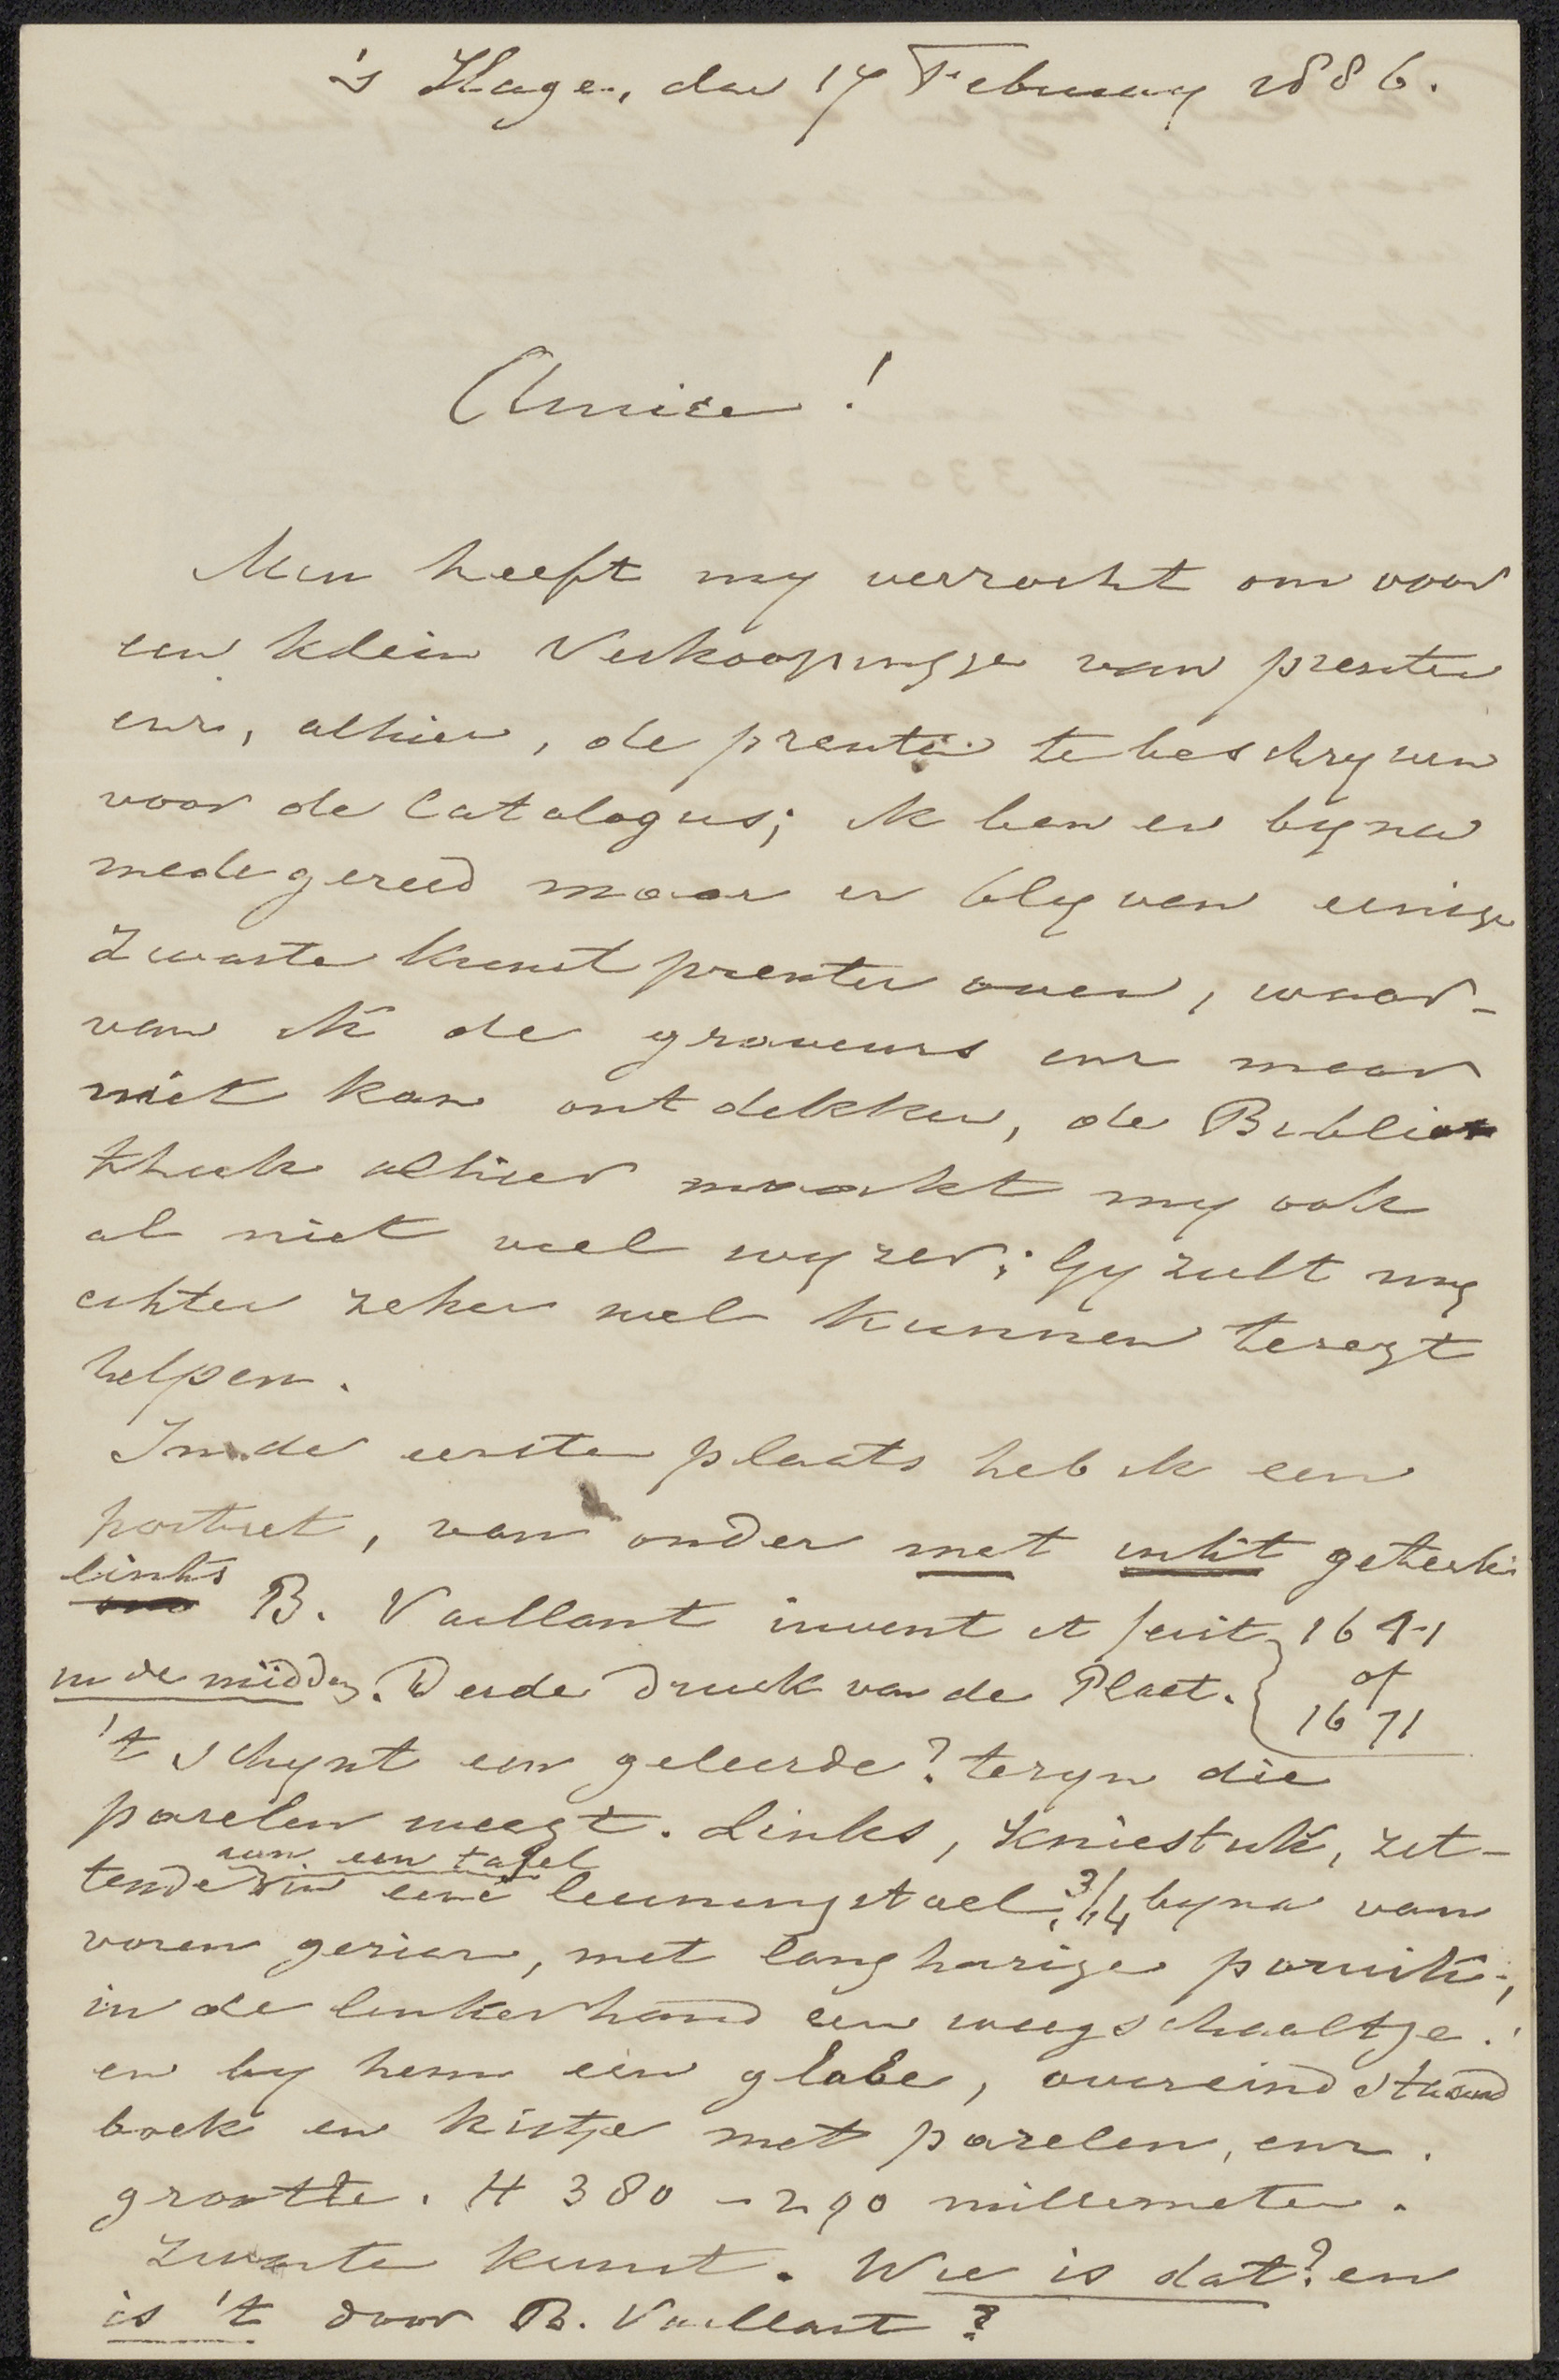 's Hage, den 17 February 1886.
Amice!
Men heeft my verzocht om voor
een klein Verkoopingje van prenten
enz, alhier, de prenten te beschryven
voor de Catalogus; ik ben er byna
mede gereed maar er blyven eenige
zwarte kunst prenten over, waar-
van ik de graveurs enz maar
niet kan ontdekken, de Biblio
theek alhier maakt my ook
al niet veel wyzer; Gy zult my
echter zeker wel kunnen teregt
helpen.
In de eerste plaats heb ik een
portret, van onder met inkt getekt
links B. Vaillant invent et fecit 1641
of
1671
in de midden. Derde druk van de Plaat.
't schynt een geleerde? te zyn die
parelen weegt. Links, Kniestuk, zit-
aan een tafel
tende in eene leuningstoel, 3/4 byna van
voren gezien, met langharige paruik,
in de linkerhand een weegschaaltje.
en by hem een globe, overeind staand
boek en kistje met parelen, enz.
grootte. H 380 - 290 millemeter.
Zwarte kunst. Wie is dat? en
is 't door B. Vaillant?